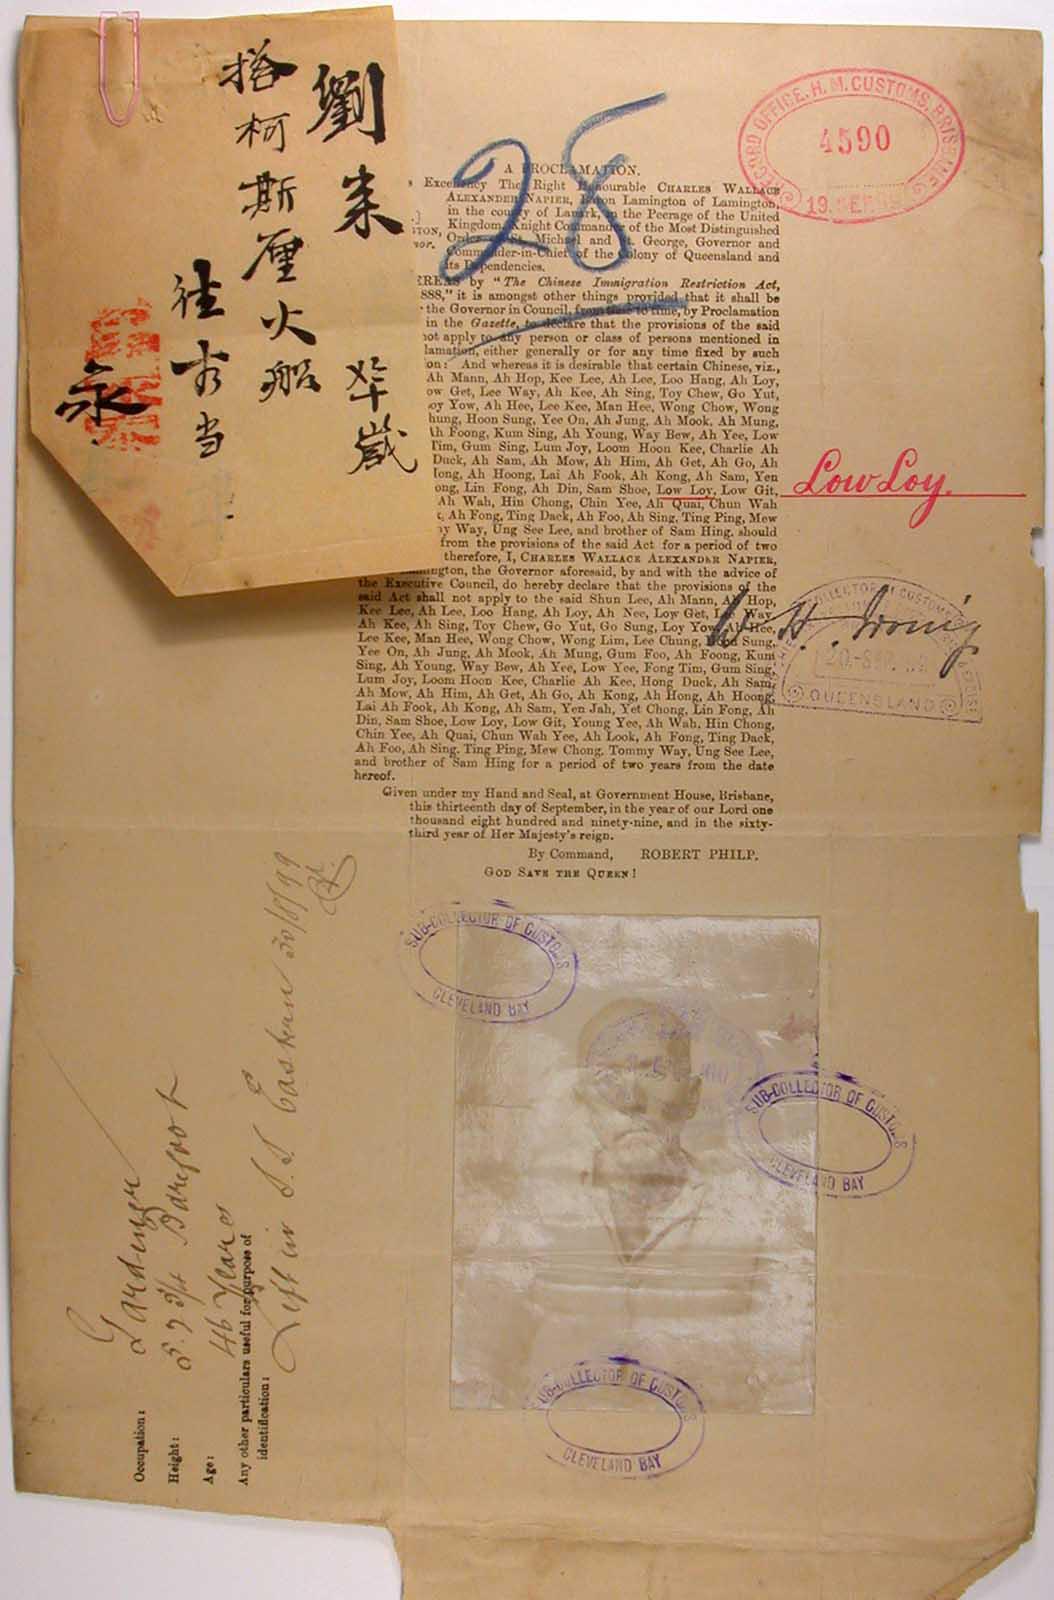 劉來 𠦜年歲
搭柯斯厘火船
往方当
永
28
RECORD OFFICE. H. M. CUSTOMS, BRISBANE
4590
19. SEP. 99
A PROCLAMATION.
Excellency The Right Honourable CHARLES WALLACE
ALEXANDER NAPIER, Baron Lamington of Lamington,
in the county of Lanark, in the Peerage of the United
Kingdom, Knight Commander of the Most Distinguished
Order of St. Michael and St. George, Governor and
Commander-in-Chief of the Colony of Queensland and
its Dependencies.
by "The Chinese Immigration Restriction Act,
1888," it is amongst other things provided that it shall be
the Governor in Council, from time to time, by Proclamation
in the Gazette, to declare that the provisions of the said
not apply to any person or class of persons mentioned in
either generally or for any time fixed by such
And whereas it is desirable that certain Chinese, viz.,
Ah Mann, Ah Hop, Kee Lee, Ah Lee, Loo Hang, Ah Loy,
Get, Lee Way, Ah Kee, Ah Sing, Toy Chew, Go Yut,
Yow, Ah Hee, Lee Kee, Man Hee, Wong Chow, Wong
Hoon Sung, Yee On, Ah Jung, Ah Mook, Ah Mung,
Ah Foong, Kum Sing, Ah Young, Way Bew, Ah Yee, Low
Tim, Gum Sing, Lum Joy, Loom Hoon Kee, Charlie Ah
Duck, Ah Sam, Ah Mow, Ah Him, Ah Get, Ah Go, Ah
Ah Hoong, Lai Ah Fook, Ah Kong, Ah Sam, Yen
Lin Fong, Ah Din, Sam Shoe, Low Loy, Low Git,
Ah Wah, Hin Chong, Chin Yee, Ah Quai, Chun Wah
Ah Fong, Ting Dack, Ah Foo, Ah Sing, Ting Ping, Mew
Way, Ung See Lee, and brother of Sam Hing, should
from the provisions of the said Act for a period of two
therefore, I, CHARLES WALLACE ALEXANDER NAPIER,
the Governor aforesaid, by and with the advice of
the Executive Council, do hereby declare that the provisions of the
said Act shall not apply to the said Shun Lee, Ah Mann, Ah Hop,
Kee Lee, Ah Lee, Loo Hang, Ah Loy, Ah Nee, Low Get, Lee Way,
Ah Kee, Ah Sing, Toy Chew, Go Yut, Go Sung, Loy Yow, Ah Hee,
Lee Kee, Man Hee, Wong Chow, Wong Lim, Lee Chung, Hoon Sung,
Yee On, Ah Jung, Ah Mook, Ah Mung, Gum Foo, Ah Foong, Kum
Sing, Ah Young, Way Bew, Ah Yee, Low Yee, Fong Tim, Gum Sing,
Lum Joy, Loom Hoon Kee, Charlie Ah Kee, Hong Duck, Ah Sam,
Ah Mow, Ah Him, Ah Get, Ah Go, Ah Kong, Ah Hong, Ah Hoong,
Lai Ah Fook, Ah Kong, Ah Sam, Yen Jah, Yet Chong, Lin Fong, Ah
Din, Sam Shoe, Low Loy, Low Git, Young Yee, Ah Wah, Hin Chong,
Chin Yee, Ah Quai, Chun Wah Yee, Ah Look, Ah Fong, Ting Dack,
Ah Foo, Ah Sing, Ting Ping, Mew Chong, Tommy Way, Ung See Lee,
and brother of Sam Hing for a period of two years from the date
hereof.
Given under my Hand and Seal, at Government House, Brisbane,
this thirteenth day of September, in the year of our Lord one
thousand eight hundred and ninety-nine, and in the sixty-
third year of Her Majesty's reign.
By Command, ROBERT PHILP.
GOD SAVE THE QUEEN!
Low Loy.
W. H. Irving
COLLECTOR OF CUSTOMS
QUEENSLAND
SUB-COLLECTOR OF CUSTOMS
CLEVELAND BAY
SUB-COLLECTOR OF CUSTOMS
CLEVELAND BAY
SUB-COLLECTOR OF CUSTOMS
CLEVELAND BAY
Occupation: Gardener
Height: 5.7 3/4 Barefoot
Age: 46 Years
Any other particulars useful for purpose of
identification:
Left in S.S. Eastern 30/8/99